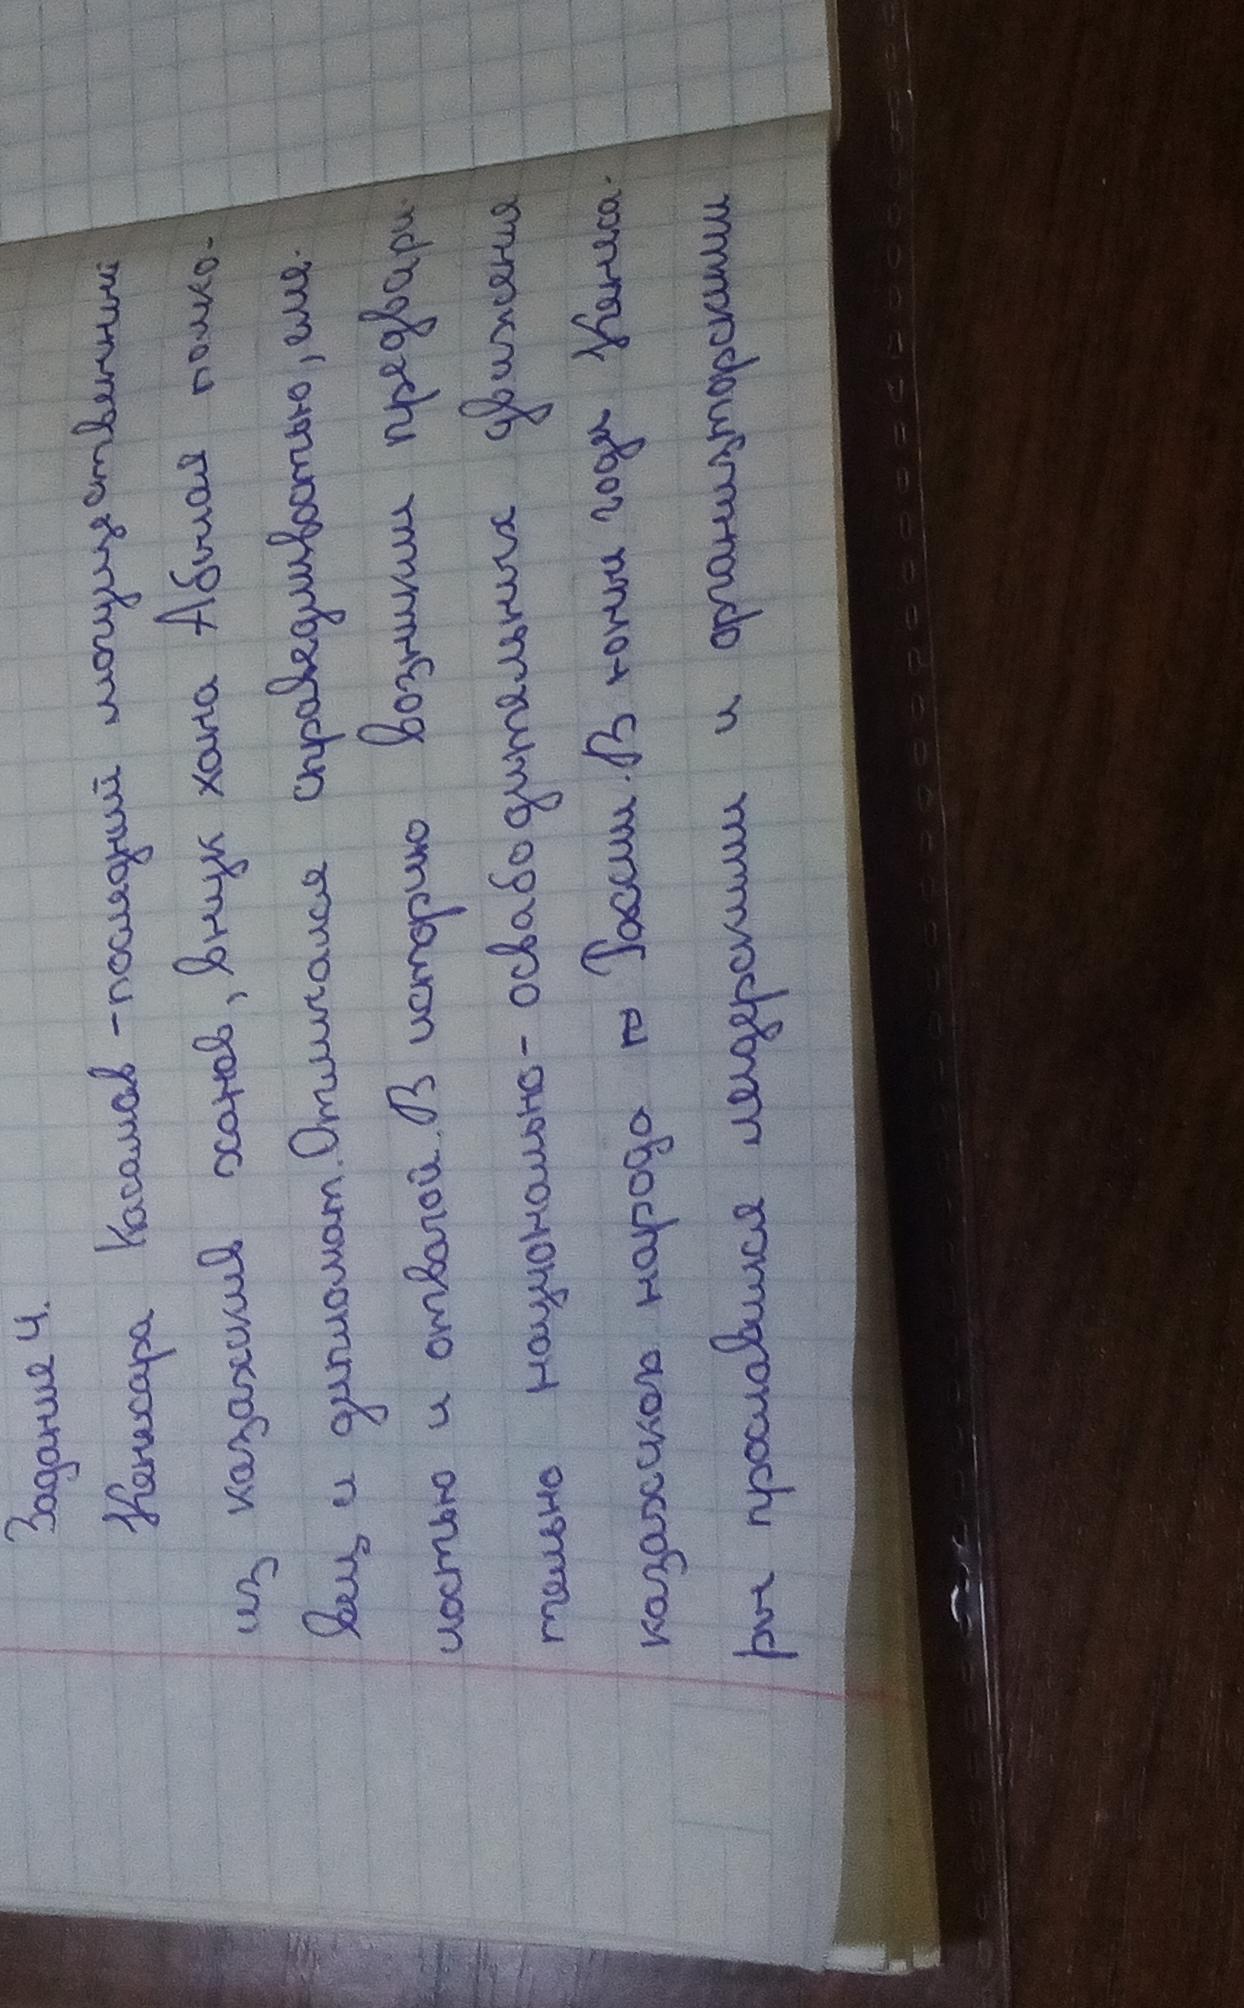 Задание 4.
Кенесара Касымов - последний могущественний
из казахских ханов, внук хана Абылая полко-
вец и дипломат. Отличался справедливостью, сме-
лостью и отвагой. В историю возникши предвари
тельно национально - освабодительных движения
казахских народа Росии. В юныи годы Кениса-
ры прославился лидерскими и организторскими